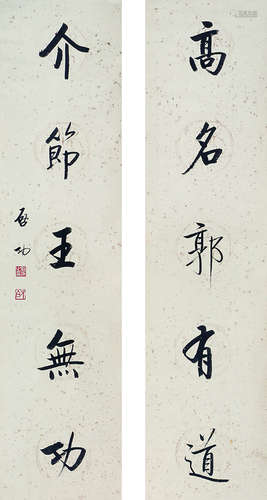 高名郭有道
介節王無功
啟功